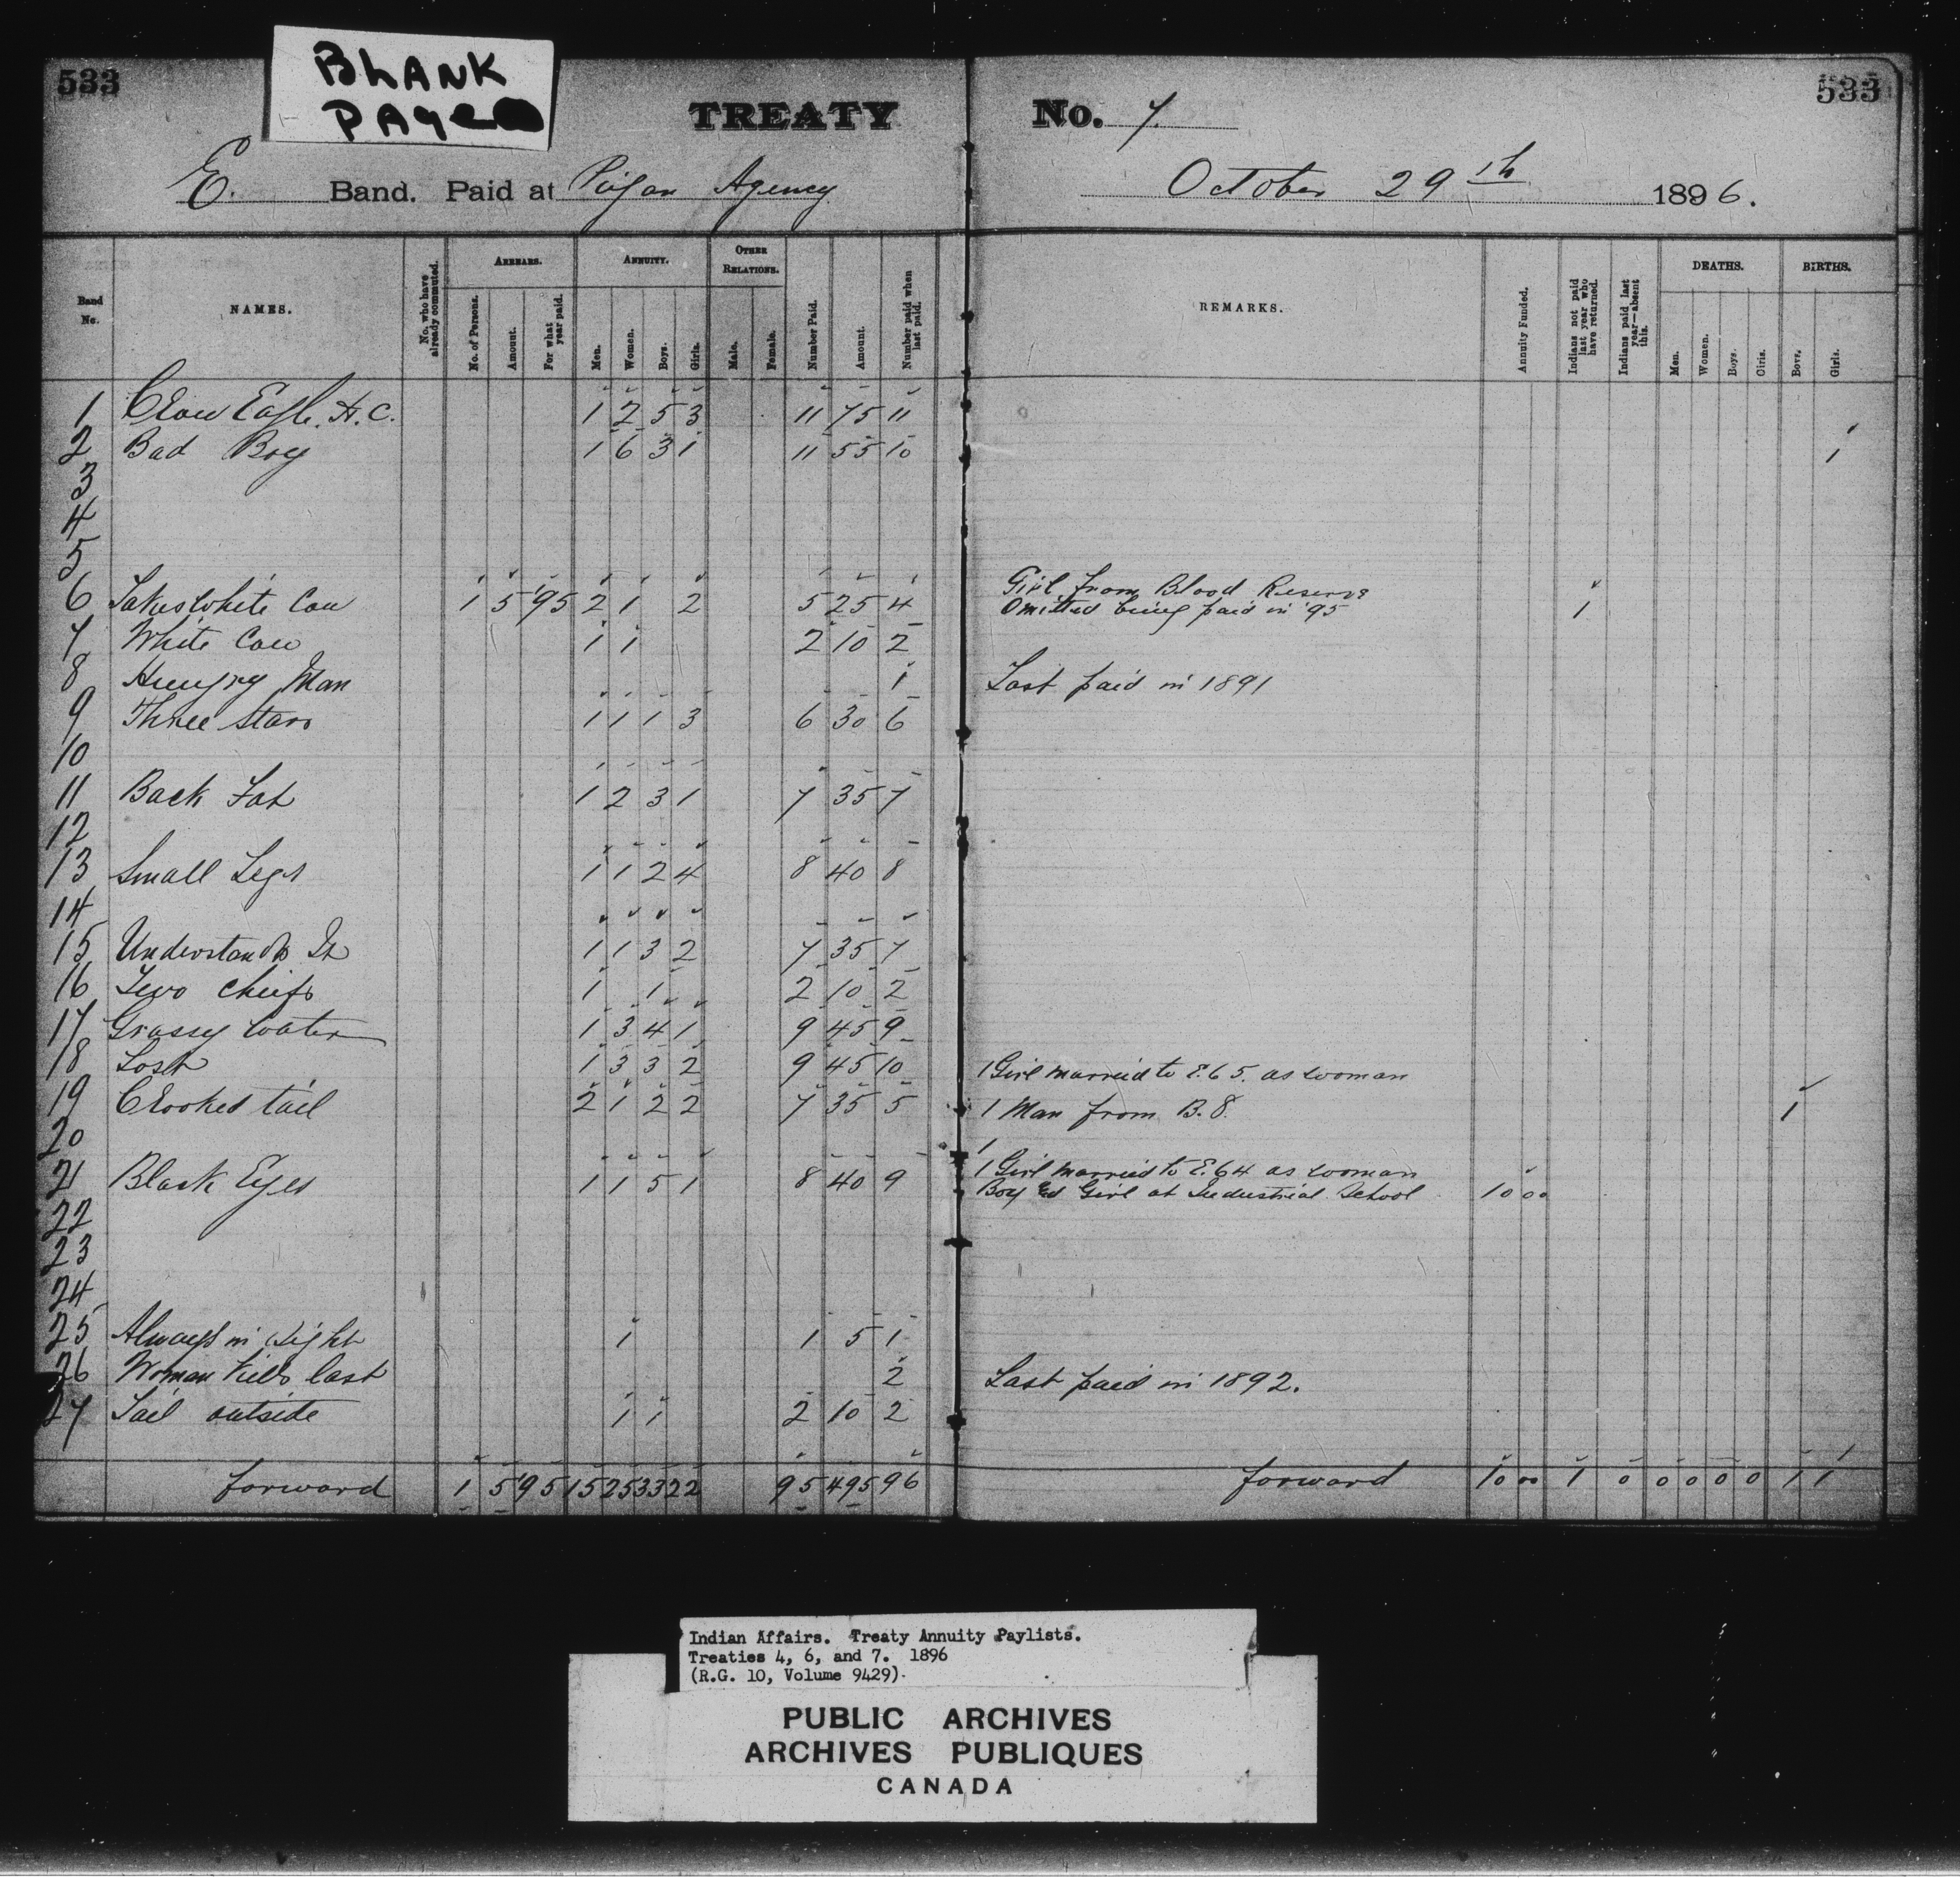 533
BLANK
PAGE
533
TREATY No. 7.
E. Band. Paid at Piegan Agency October 29th 1896.
Band No. NAMES. No. who have already commuted. ARREARS. No. of Persons. Amount. For what year paid. ANNUITY. Men. Women. Boys. Girls. OTHER RELATIONS. Male. Female. Number Paid. Amount. Number paid when last paid. REMARKS. Annuity Funded. Indians not paid last year who have returned. Indians paid last year—absent this. DEATHS. Men. Women. Boys. Girls. BIRTHS. Boys. Girls.
1 Crow Eagle. H. C. 1 2 5 3 11 75 11
2 Bad Boy 1 6 3 1 11 55 10 1
3
4
5
6 Takes White Cow 1 5 '95 2 1 2 5 25 4 Girl from Blood Reserve
Omitted being paid in '95 1
7 White Cow 1 1 2 10 2
8 Hungry Man 1 Last paid in 1891
9 Three Stars 1 1 1 3 6 30 6
10
11 Back Fat 1 2 3 1 7 35 7
12
13 Small Legs 1 1 2 4 8 40 8
14
15 Understands It 1 1 3 2 7 35 7
16 Two Chiefs 1 1 2 10 2
17 Grassy Water 1 3 4 1 9 45 9
18 Lost 1 3 3 2 9 45 10 1 Girl married to E. 65. as woman
19 Crooked tail 2 1 2 2 7 35 5 1 Man from B. 8. 1
20
21 Black Eyes 1 1 5 1 8 40 9 1 Girl married to E. 64 as woman
Boy Girl at Industrial School 10 00
22
23
24
25 Always in Sight 1 1 5 1
26 Woman Kills last 2 Last paid in 1892.
27 Tail outside 1 1 2 10 2
forward 1 5 95 15 25 33 22 95 495 96 forward 10 00 1 0 0 0 0 0 1 1
Indian Affairs. Treaty Annuity Paylists.
Treaties 4, 6, and 7. 1896
(R.G. 10, Volume 9429).
PUBLIC ARCHIVES
ARCHIVES PUBLIQUES
CANADA